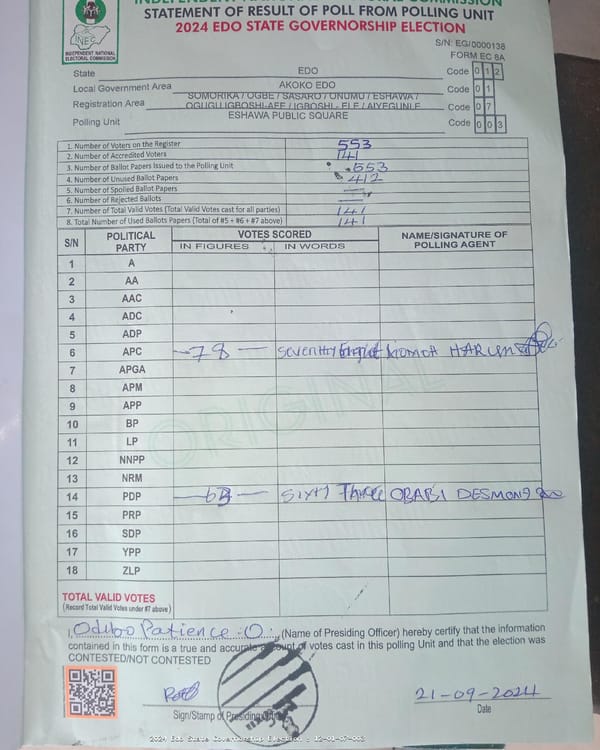 INDEPENDENT NATIONAL ELECTORAL COMMISSION
STATEMENT OF RESULT OF POLL FROM POLLING UNIT
2024 EDO STATE GOVERNORSHIP ELECTION
INEC
INDEPENDENT NATIONAL
ELECTORAL COMMISSION
S/N: EG/0000138
FORM EC 8A
State EDO Code 0 1 2
Local Government Area AKOKO EDO Code 0 1
Registration Area SOMORIKA / OGBE / SASARO / ONUMU / ESHAWA / OGUGU IGBOSHI-AFE / IGBOSHI - ELE / AIYEGUNLE Code 0 7
Polling Unit ESHAWA PUBLIC SQUARE Code 0 0 3
1. Number of Voters on the Register 553
2. Number of Accredited Voters 141
3. Number of Ballot Papers Issued to the Polling Unit 553
4. Number of Unused Ballot Papers 412
5. Number of Spoiled Ballot Papers —
6. Number of Rejected Ballots —
7. Number of Total Valid Votes (Total Valid Votes cast for all parties) 141
8. Total Number of Used Ballots Papers (Total of #5 + #6 + #7 above) 141
S/N POLITICAL PARTY VOTES SCORED NAME/SIGNATURE OF POLLING AGENT
IN FIGURES IN WORDS
1 A
2 AA
3 AAC
4 ADC
5 ADP
6 APC —78— HARUN
7 APGA
8 APM
9 APP
10 BP
11 LP
12 NNPP
13 NRM
14 PDP —63— SIXTY THREE OBABI DESMOND
15 PRP
16 SDP
17 YPP
18 ZLP
ORIGINAL
TOTAL VALID VOTES
(Record Total Valid Votes under #7 above)
I, Odubo Patience .O. (Name of Presiding Officer) hereby certify that the information
contained in this form is a true and accurate account of votes cast in this polling Unit and that the election was
CONTESTED/NOT CONTESTED
21-09-2024
Sign/Stamp of Presiding Date
2024 Edo State Governorship Election : 12-01-07-003